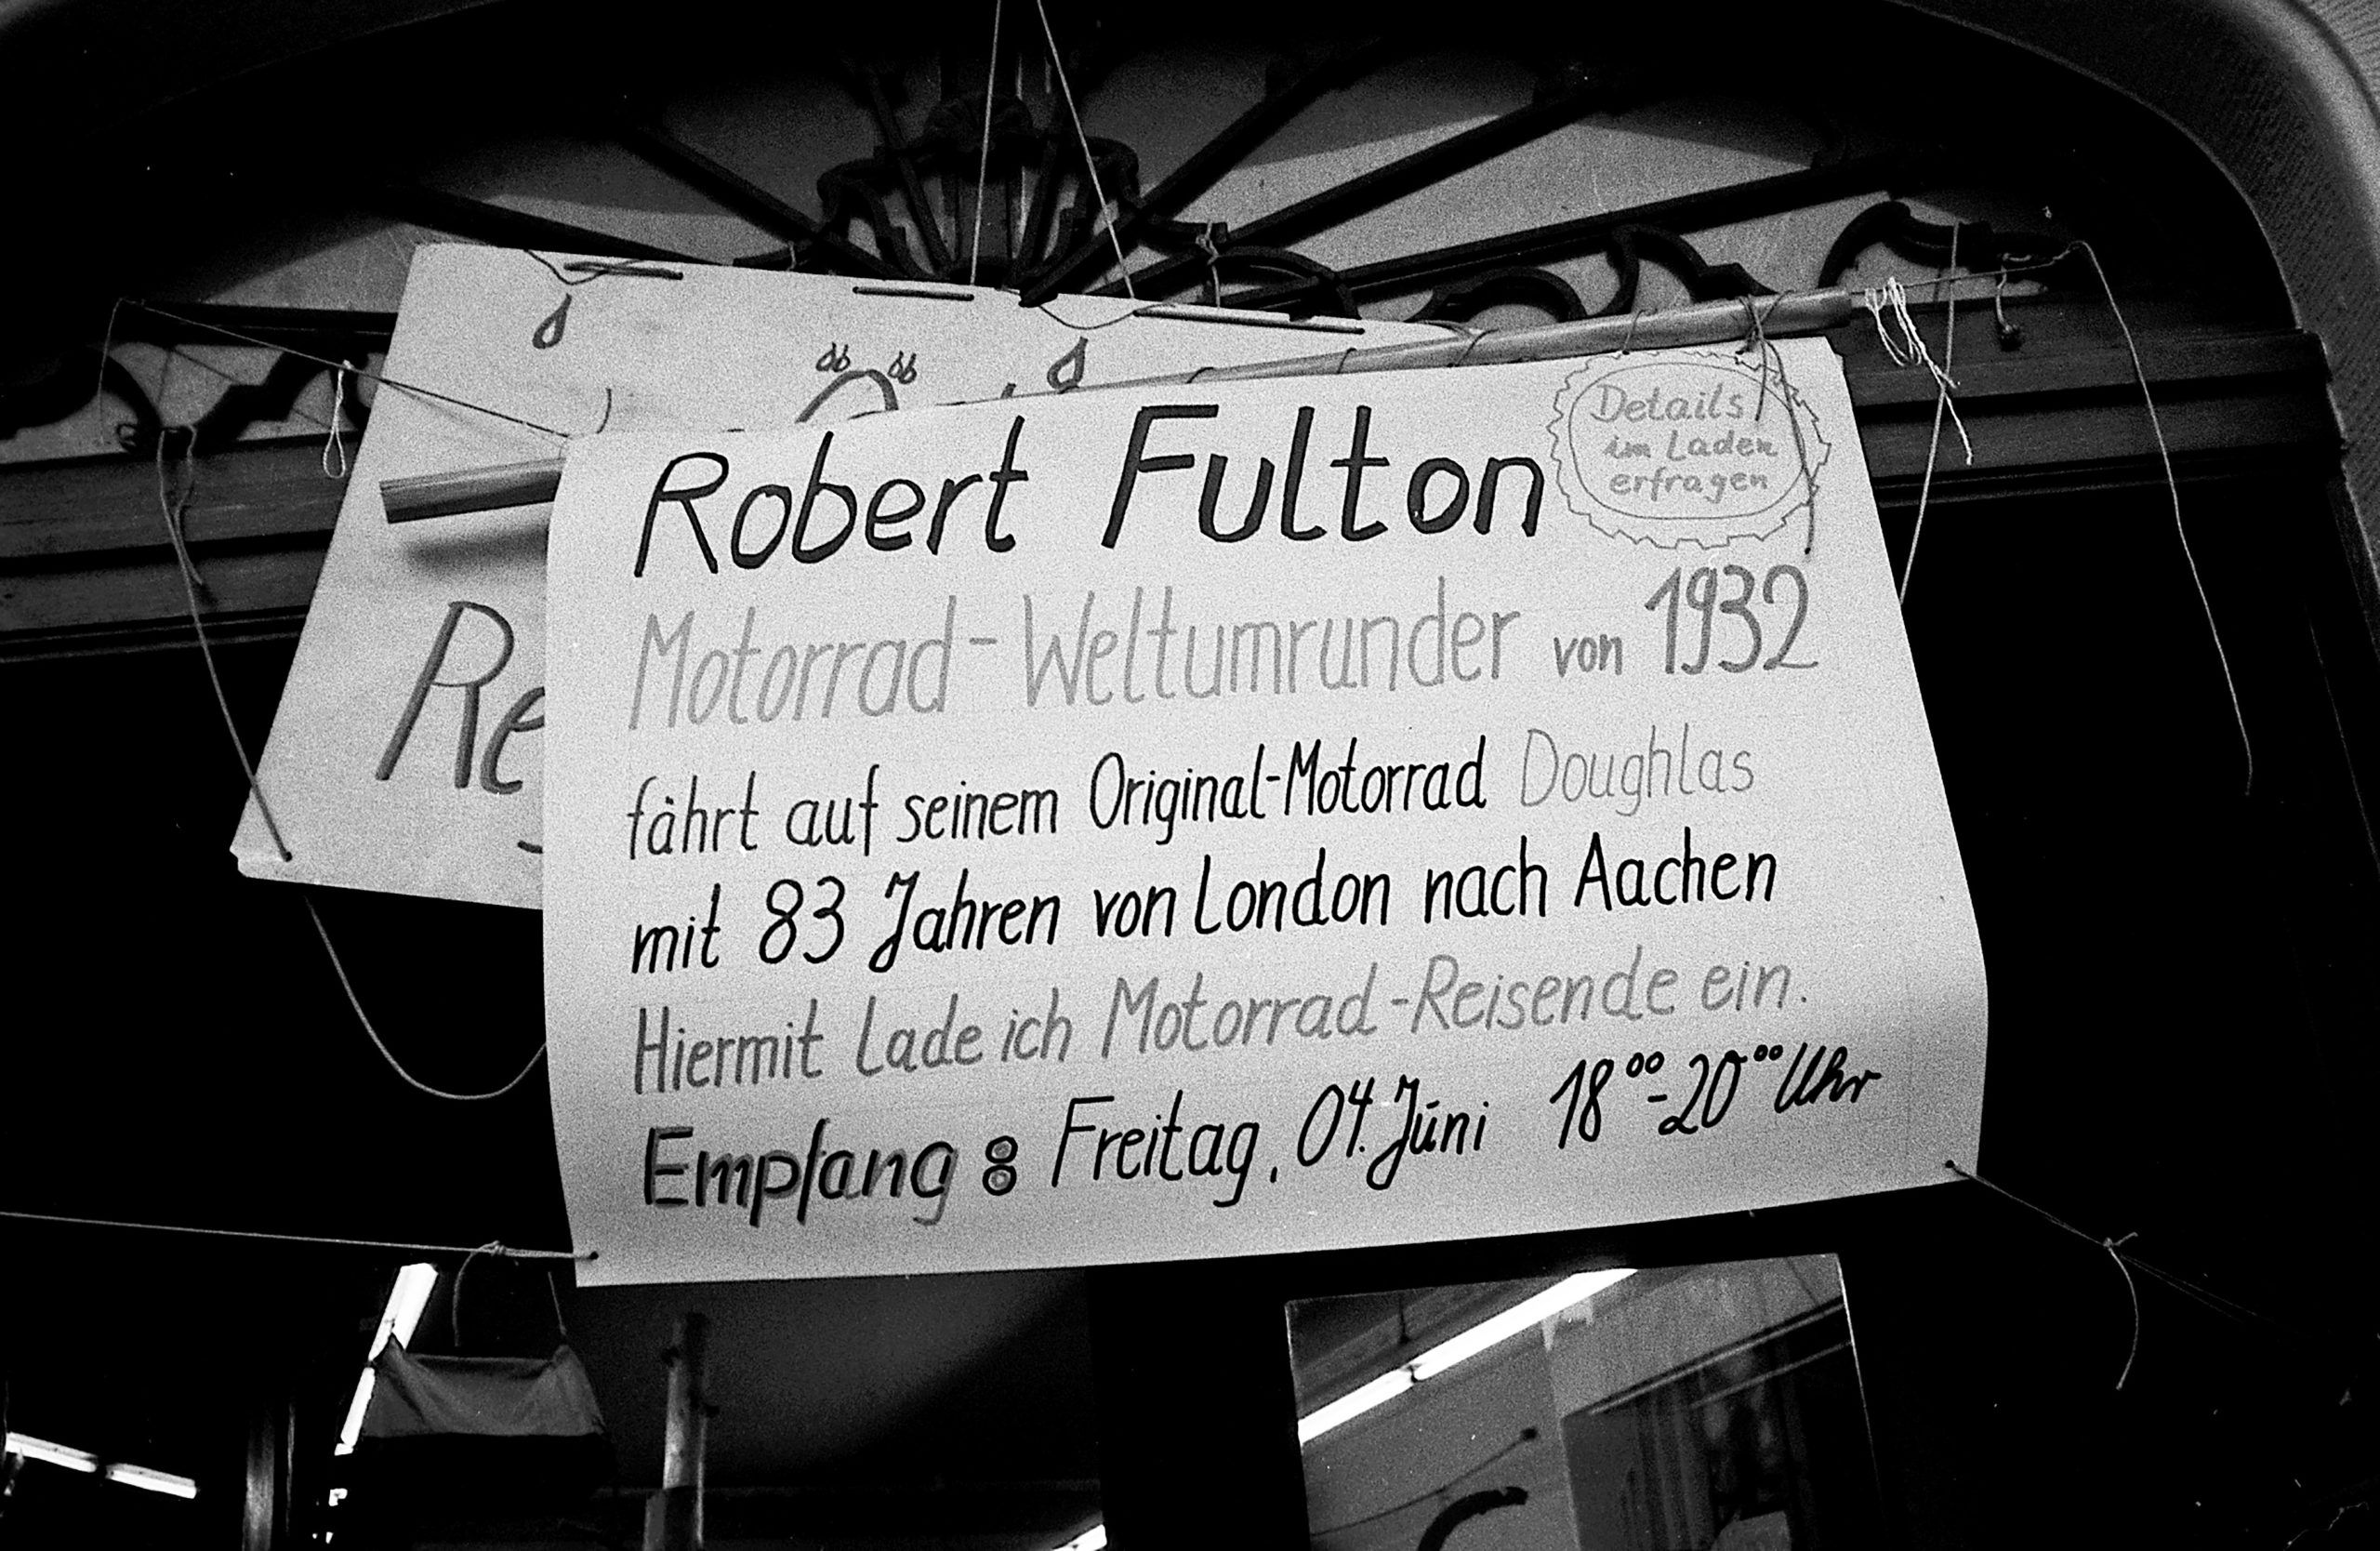 Robert Fulton
Details
im Laden
erfragen
Motorrad-Weltumrunder von 1932
fährt auf seinem Original-Motorrad Doughlas
mit 83 Jahren von London nach Aachen
Hiermit lade ich Motorrad-Reisende ein.
Empfang: Freitag, 04. Juni 18⁰⁰-20⁰⁰ Uhr
Re